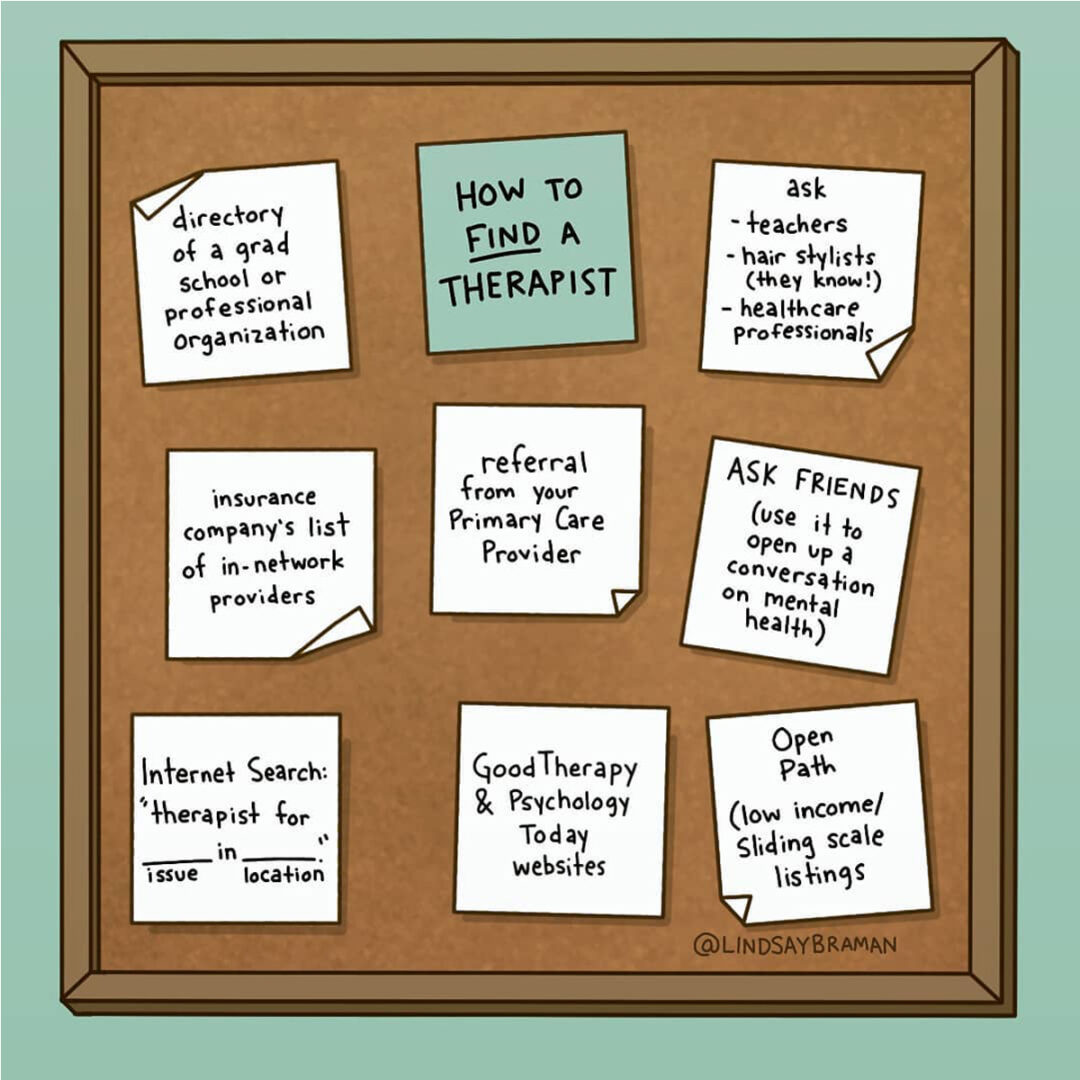 directory
of a grad
school or
professional
organization
HOW TO
FIND A
THERAPIST
ask
- teachers
- hair stylists
(they know!)
- healthcare
professionals
insurance
company's list
of in-network
providers
referral
from your
Primary Care
Provider
ASK FRIENDS
(use it to
open up a
conversation
on mental
health)
Internet Search:
"therapist for
______ in ______."
issue location
GoodTherapy
& Psychology
Today
websites
Open
Path
(low income/
Sliding scale
listings
@LINDSAYBRAMAN